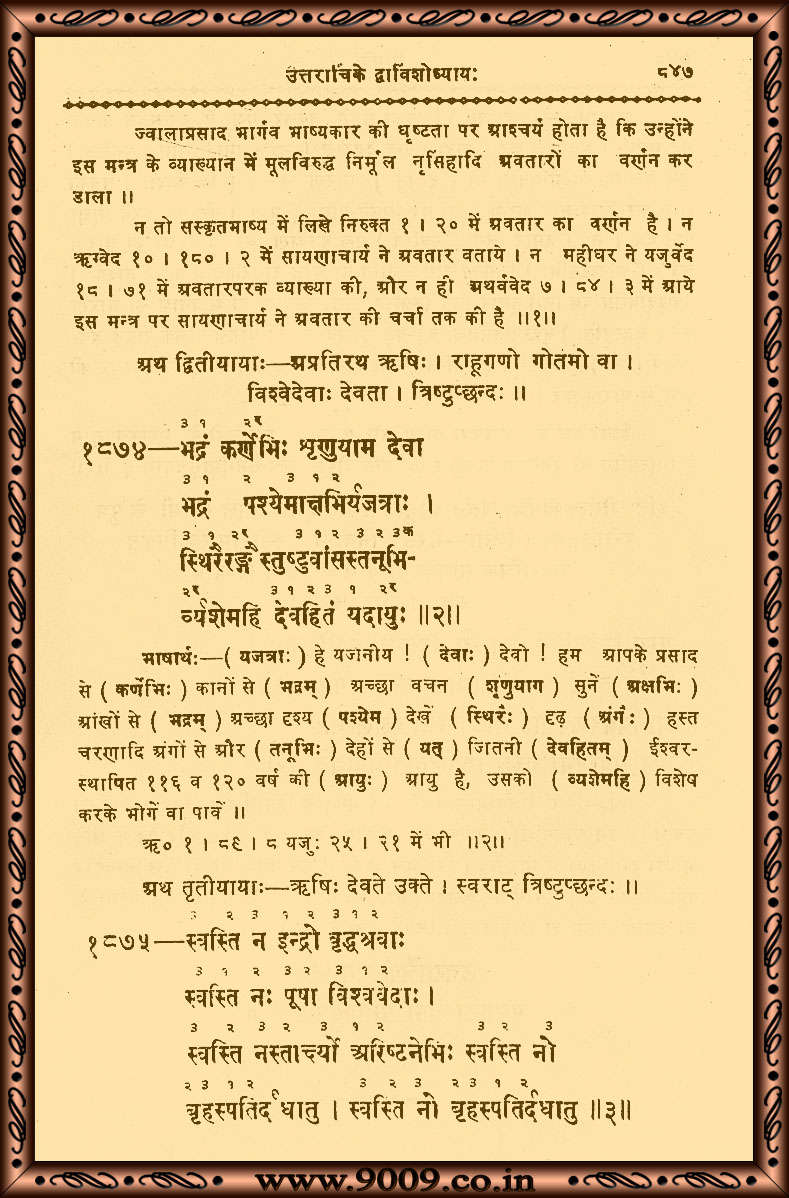 उत्तरार्चिके द्वाविंशोध्यायः ८४७
ज्वालाप्रसाद भार्गव भाष्यकार की धृष्टता पर आश्चर्य होता है कि उन्होंने
इस मन्त्र के व्याख्यान में मूलविरुद्ध निर्मूल नृसिंहादि अवतारों का वर्णन कर
डाला ॥
न तो सस्कृतभाष्य में लिखे निरुक्त १ । २० में अवतार का वर्णन है । न
ऋग्वेद १० । १८० । २ में सायणाचार्य ने अवतार वताये । न महीधर ने यजुर्वेद
१८ । ७१ में अवतारपरक व्याख्या की, और न ही अथर्ववेद ७ । ८४ । ३ में आये
इस मन्त्र पर सायणाचार्य ने अवतार की चर्चा तक की है ॥१॥
अथ द्वितीयायाः—अप्रतिरथ ऋषिः । राहूगणो गोतमो वा ।
विश्वेदेवाः देवता । त्रिष्टुप्छन्दः ॥
३ १ २र
१८७४—भद्रं कर्णेभिः शृणुयाम देवा
३ १ २ ३ १ २
भद्रं पश्येमाक्षभिर्यजत्राः ।
३ १ २र ३ १ २ ३ २ ३क
स्थिरैरङ्गैस्तुष्टुवांसस्तनूभि-
२र ३ १ २ ३ १ २र
र्व्यशेमहि देवहितं यदायुः ॥२॥
भाषार्थः—( यजत्राः ) हे यजनीय ! ( देवाः ) देवो ! हम आपके प्रसाद
से ( कर्णेभिः ) कानों से ( भद्रम् ) अच्छा वचन ( शृणुयाग ) सुनें ( अक्षभिः )
आंखों से ( भद्रम् ) अच्छा दृश्य ( पश्येम ) देखें ( स्थिरैः ) दृढ़ ( अंगैः ) हस्त
चरणादि अंगों से और ( तनूभिः ) देहों से ( यत् ) जितनी ( देवहितम् ) ईश्वर-
स्थापित ११६ व १२० वर्ष की ( आयुः ) आयु है, उसको ( व्यशेमहि ) विशेष
करके भोगें वा पावें ॥
ऋ० १ । ८९ । ८ यजुः २५ । २१ में भी ॥२॥
अथ तृतीयायाः—ऋषिः देवते उक्ते । स्वराट् त्रिष्टुप्छन्दः ॥
३ २ ३ १ २ ३ १ २
१८७५—स्वस्ति न इन्द्रो वृद्धश्रवाः
३ १ २ ३ २ ३ १ २
स्वस्ति नः पूषा विश्ववेदाः ।
३ २ ३ २ ३ १ २ ३ २ ३
स्वस्ति नस्तार्क्ष्यो अरिष्टनेभिः स्वस्ति नो
२ ३ १ २ ३ २ ३ २ ३ १ २
बृहस्पतिर्दधातु । स्वस्ति नो बृहस्पतिर्दधातु ॥३॥
www.9009.co.in